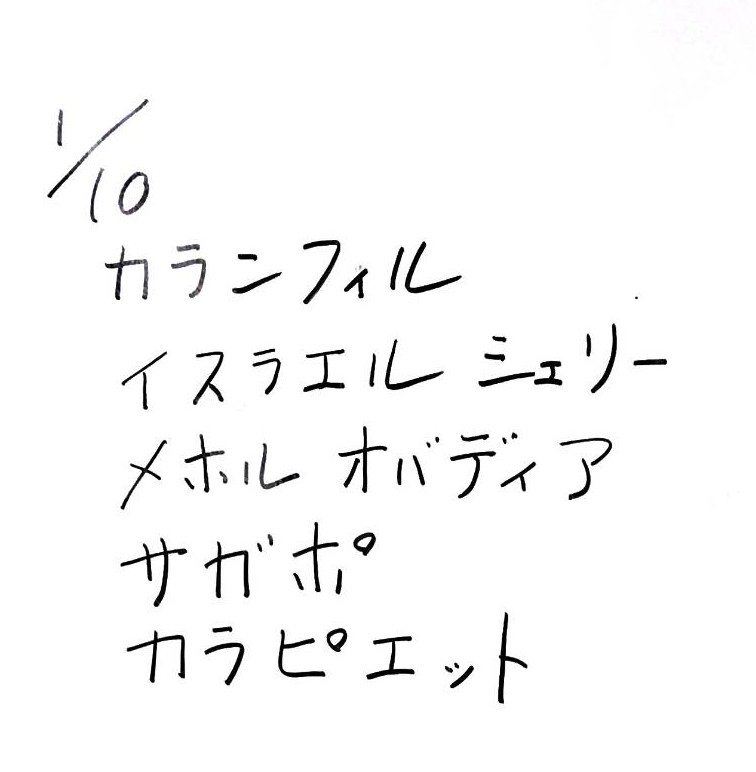 1/10
カランフィル
イスラエル シェリー
メホル オバディア
サガポ
カラピエット